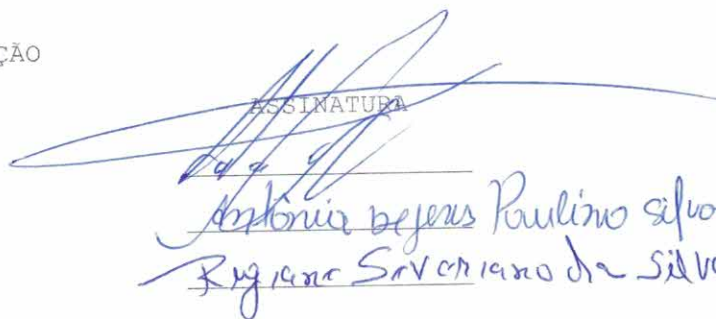 ÇÃO
ASSINATURA
Antônia Paulino Silva
Regiane Severiano da Silva